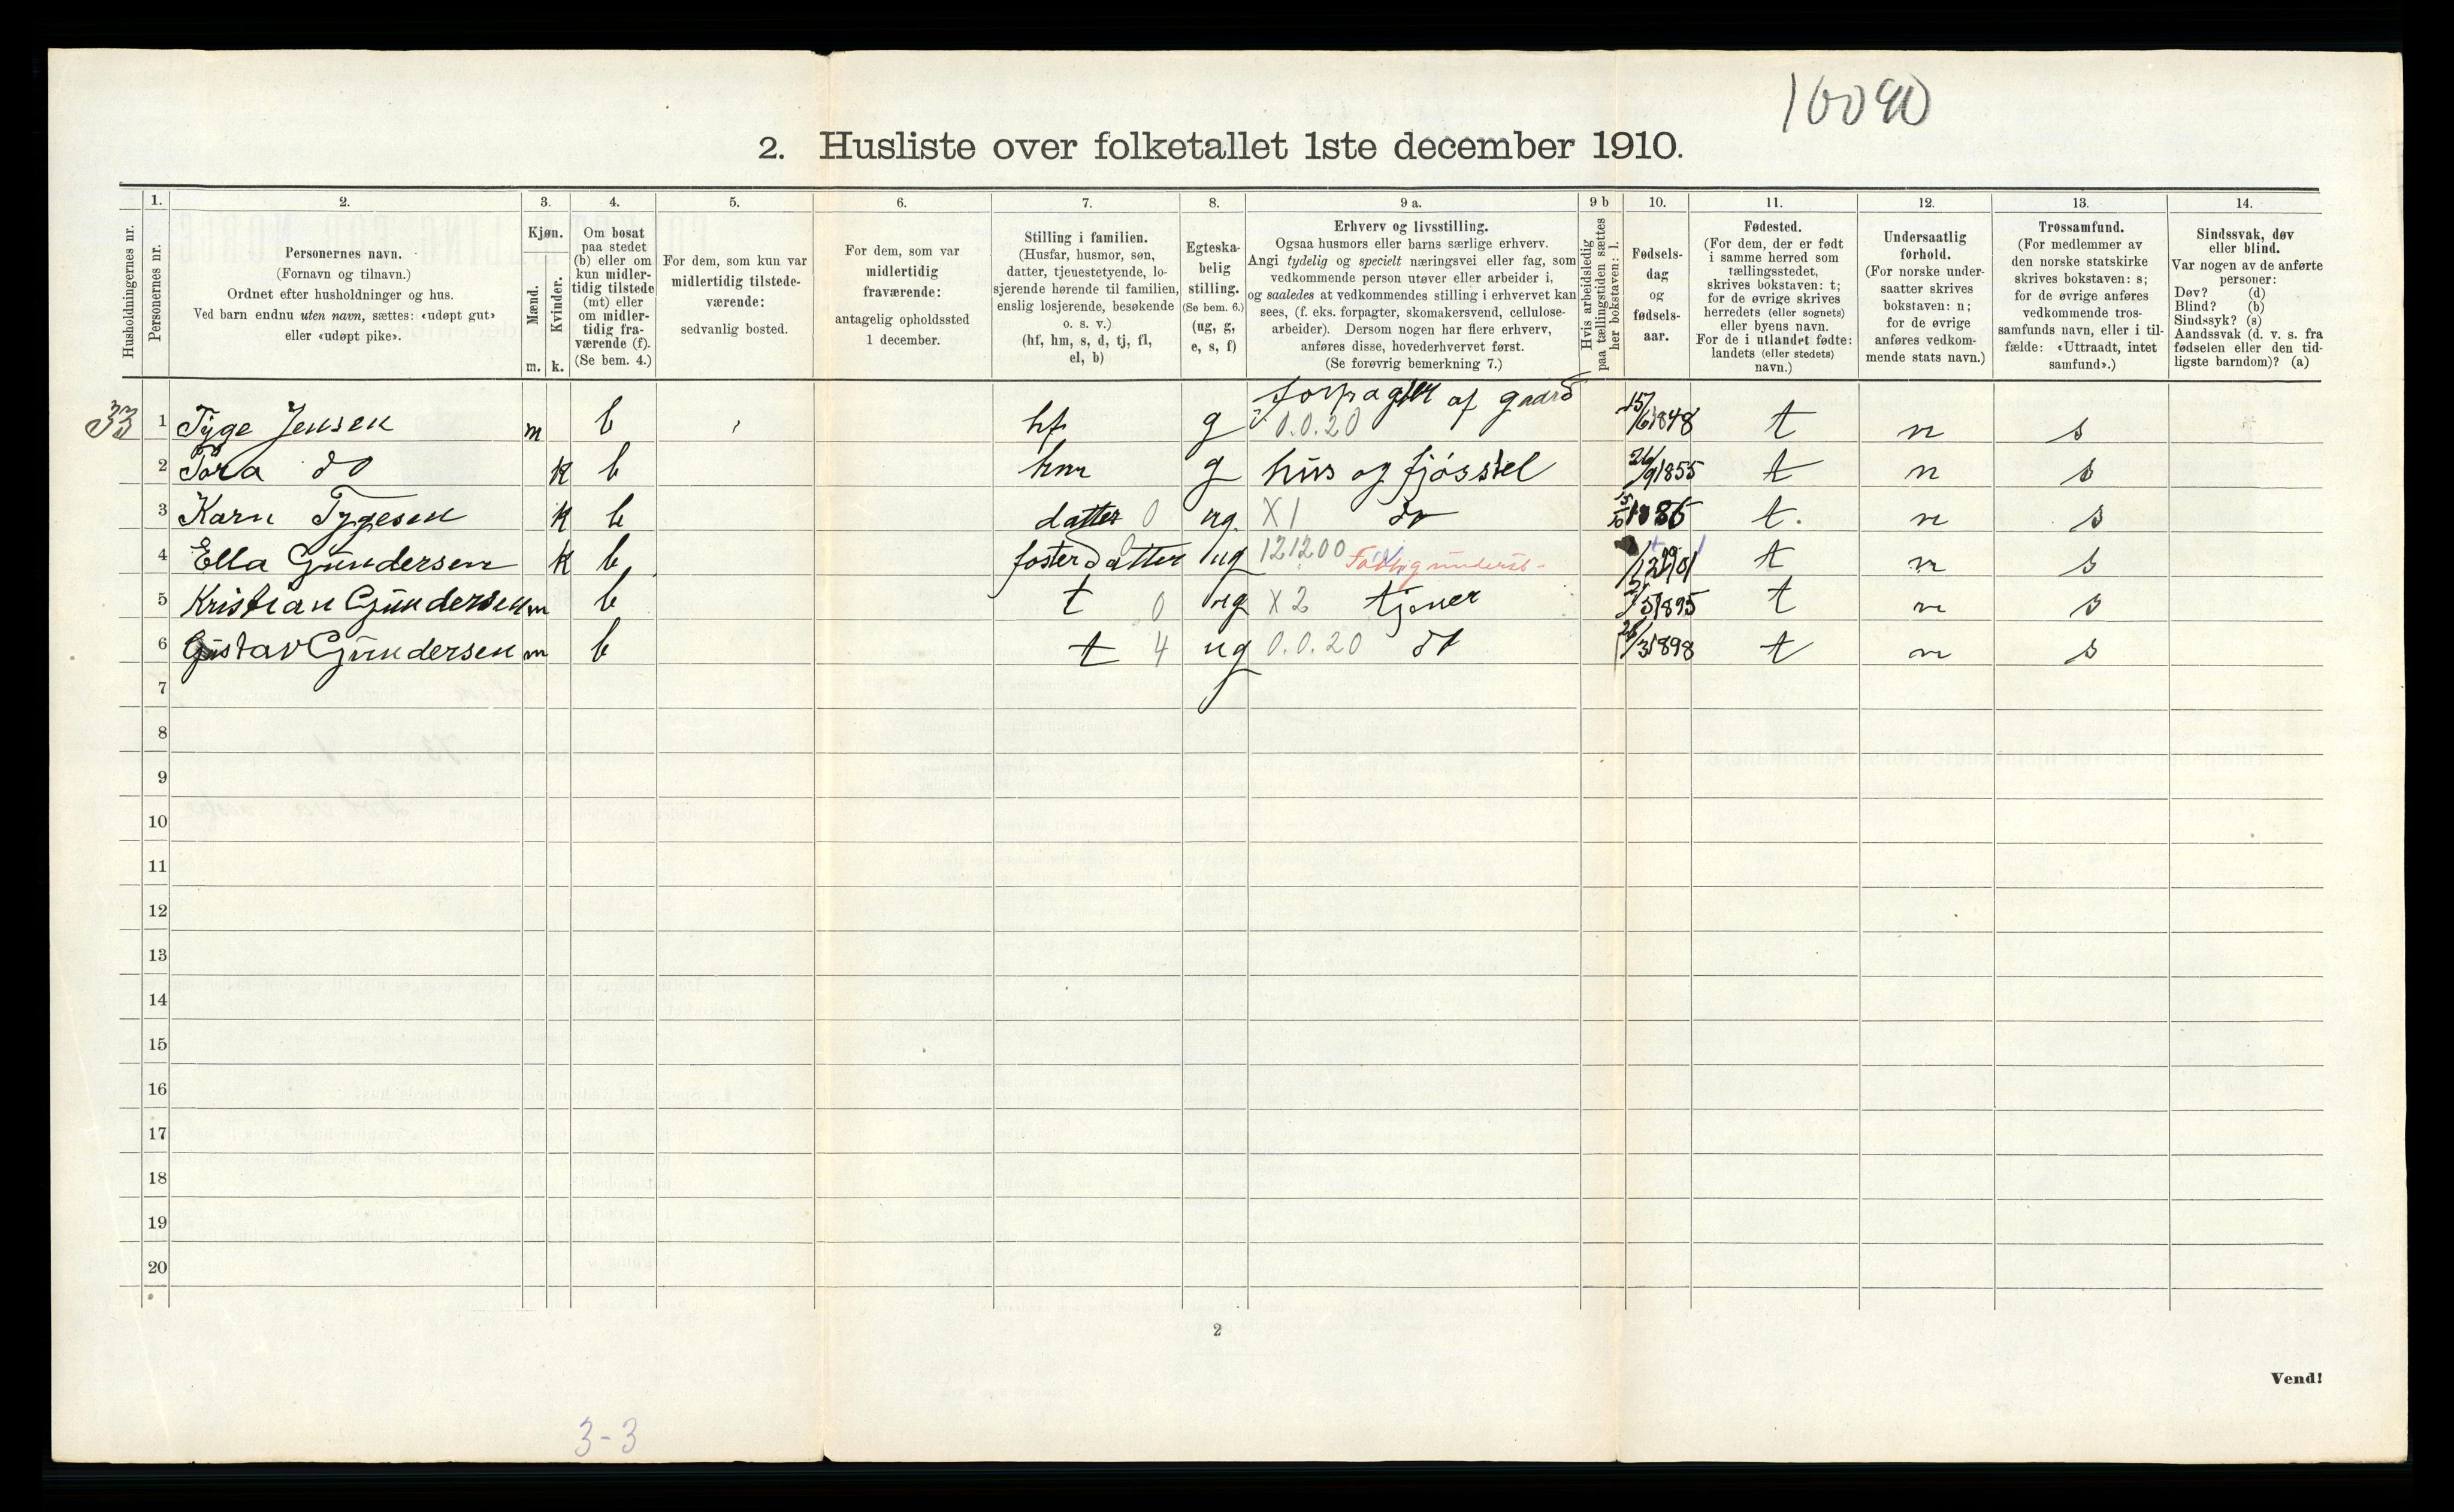 10090
2. Husliste over folketallet 1ste december 1910.
Husholdningernes nr.
1.
Personernes nr.
2.
Personernes navn.
(Fornavn og tilnavn.)
Ordnet efter husholdninger og hus.
Ved barn endnu uten navn, sættes: «udøpt gut»
eller «udøpt pike».
3.
Kjøn.
Mænd.
Kvinder.
m. k.
4.
Om bosat
paa stedet
(b) eller om
kun midler-
tidig tilstede
(mt) eller
om midler-
tidig fra-
værende (f).
(Se bem. 4.)
5.
For dem, som kun var
midlertidig tilstede-
værende:
sedvanlig bosted.
6.
For dem, som var
midlertidig
fraværende:
antagelig opholdssted
1 december.
7.
Stilling i familien.
(Husfar, husmor, søn,
datter, tjenestetyende, lo-
sjerende hørende til familien,
enslig losjerende, besøkende
o. s. v.)
(hf, hm, s, d, tj, fl,
el, b)
8.
Egteska-
belig
stilling.
(Se bem. 6.)
(ug, g,
e, s, f)
9 a.
Erhverv og livsstilling.
Ogsaa husmors eller barns særlige erhverv.
Angi tydelig og specielt næringsvei eller fag, som
vedkommende person utøver eller arbeider i,
og saaledes at vedkommendes stilling i erhvervet kan
sees, (f. eks. forpagter, skomakersvend, cellulose-
arbeider). Dersom nogen har flere erhverv,
anføres disse, hovederhvervet først.
(Se forøvrig bemerkning 7.)
9 b
Hvis arbeidsledig
paa tællingstiden sættes
her bokstaven: l.
10.
Fødsels-
dag
og
fødsels-
aar.
11.
Fødested.
(For dem, der er født
i samme herred som
tællingsstedet,
skrives bokstaven: t;
for de øvrige skrives
herredets (eller sognets)
eller byens navn.
For de i utlandet fødte:
landets (eller stedets)
navn.)
12.
Undersaatlig
forhold.
(For norske under-
saatter skrives
bokstaven: n;
for de øvrige
anføres vedkom-
mende stats navn.)
13.
Trossamfund.
(For medlemmer av
den norske statskirke
skrives bokstaven: s;
for de øvrige anføres
vedkommende tros-
samfunds navn, eller i til-
fælde: «Uttraadt, intet
samfund».)
14.
Sindssvak, døv
eller blind.
Var nogen av de anførte
personer:
Døv? (d)
Blind? (b)
Sindssyk? (s)
Aandssvak (d. v. s. fra
fødselen eller den tid-
ligste barndom)? (a)
33 1 Tyge Jensen m b hf g forpagter af gaard 0.0.20 15/6 1848 t n s
2 Tora do k b hm g hus og fjósstel 26/9 1855 t n s
3 Karn Tygesen k b datter 0 ug X1 do 15/10 1886 t. n s
4 Ella Gundersen k b fosterdatter 0 ug 121200 t n s
5 Kristian Gundersen m b t 0 ug X2 tjener /5 1895 t n s
6 Gustav Gundersen m b t 4 ug 0.0.20 do 26/3 1898 t n s
7
8
9
10
11
12
13
14
15
16
17
18
19
20
2
Vend!
3-3